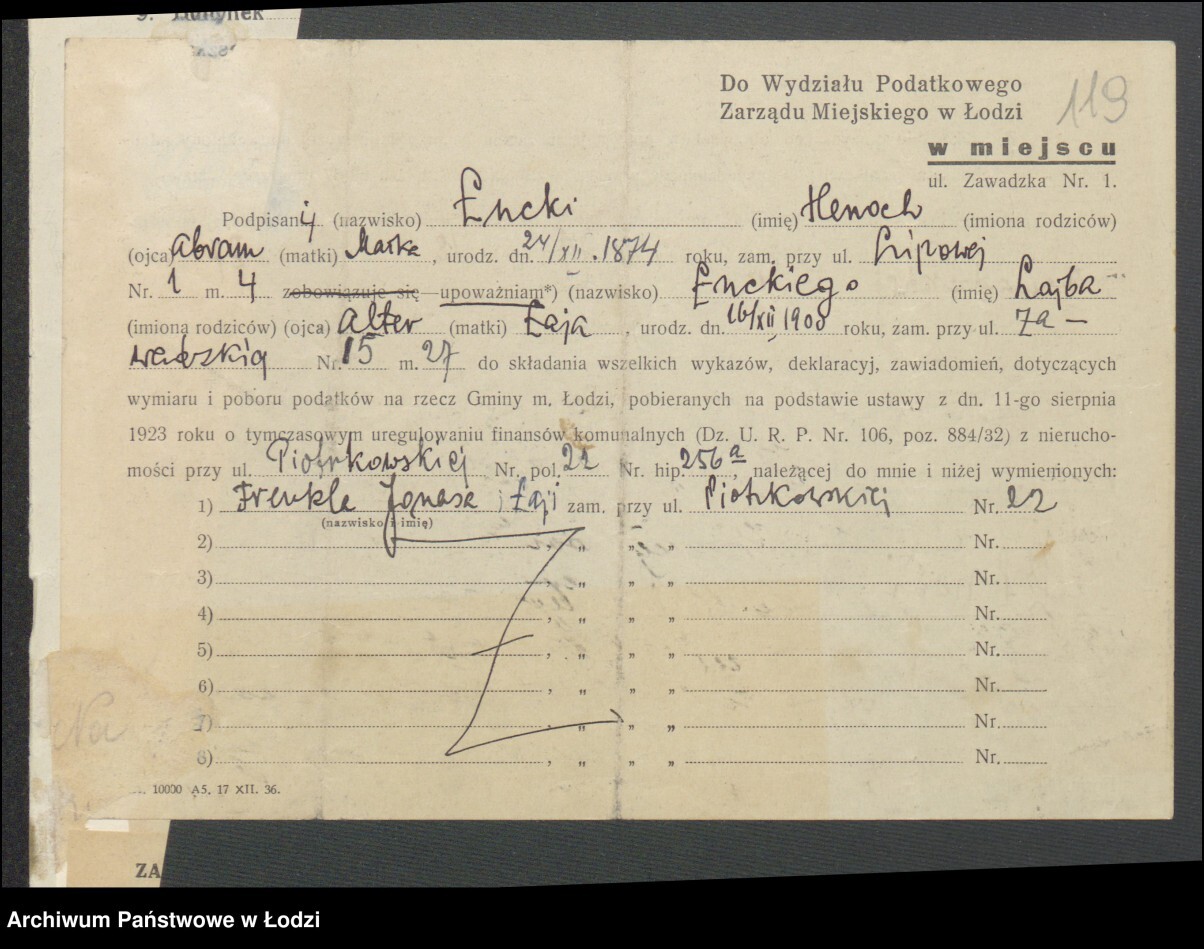 9. Budynek
Do Wydziału Podatkowego
Zarządu Miejskiego w Łodzi
119
w miejscu
ul. Zawadzka Nr. 1.
Podpisany (nazwisko) Łucki (imię) Henoch (imiona rodziców)
(ojca) Abram (matki) Maška, urodz. dn. 24/XII.1874 roku, zam. przy ul. Lipowej
Nr. 1 m. 4 zobowiązuje się upoważniam*) (nazwisko) Łuckiego (imię) Lajba
(imiona rodziców) (ojca) Alter (matki) Łaja, urodz. dn. 16/XII 1900 roku, zam. przy ul. Za-
wadzkią Nr. 15 m. 27 do składania wszelkich wykazów, deklaracyj, zawiadomień, dotyczących
wymiaru i poboru podatków na rzecz Gminy m. Łodzi, pobieranych na podstawie ustawy z dn. 11-go sierpnia
1923 roku o tymczasowym uregulowaniu finansów komunalnych (Dz. U. R. P. Nr. 106, poz. 884/32) z nierucho-
mości przy ul. Piotrkowskiej Nr. pol. 22 Nr. hip. 256a, należącej do mnie i niżej wymienionych:
1) Frenkla Jonasa i Łaji zam. przy ul. Piotrkowskiej Nr. 22
(nazwisko i imię)
2) , „ „ „ Nr.
3) , „ „ „ Nr.
4) , „ „ „ Nr.
5) , „ „ „ Nr.
6) , „ „ „ Nr.
7) , „ „ „ Nr.
8) , „ „ „ Nr.
10000 A5. 17 XII. 36.
ZA
Archiwum Państwowe w Łodzi